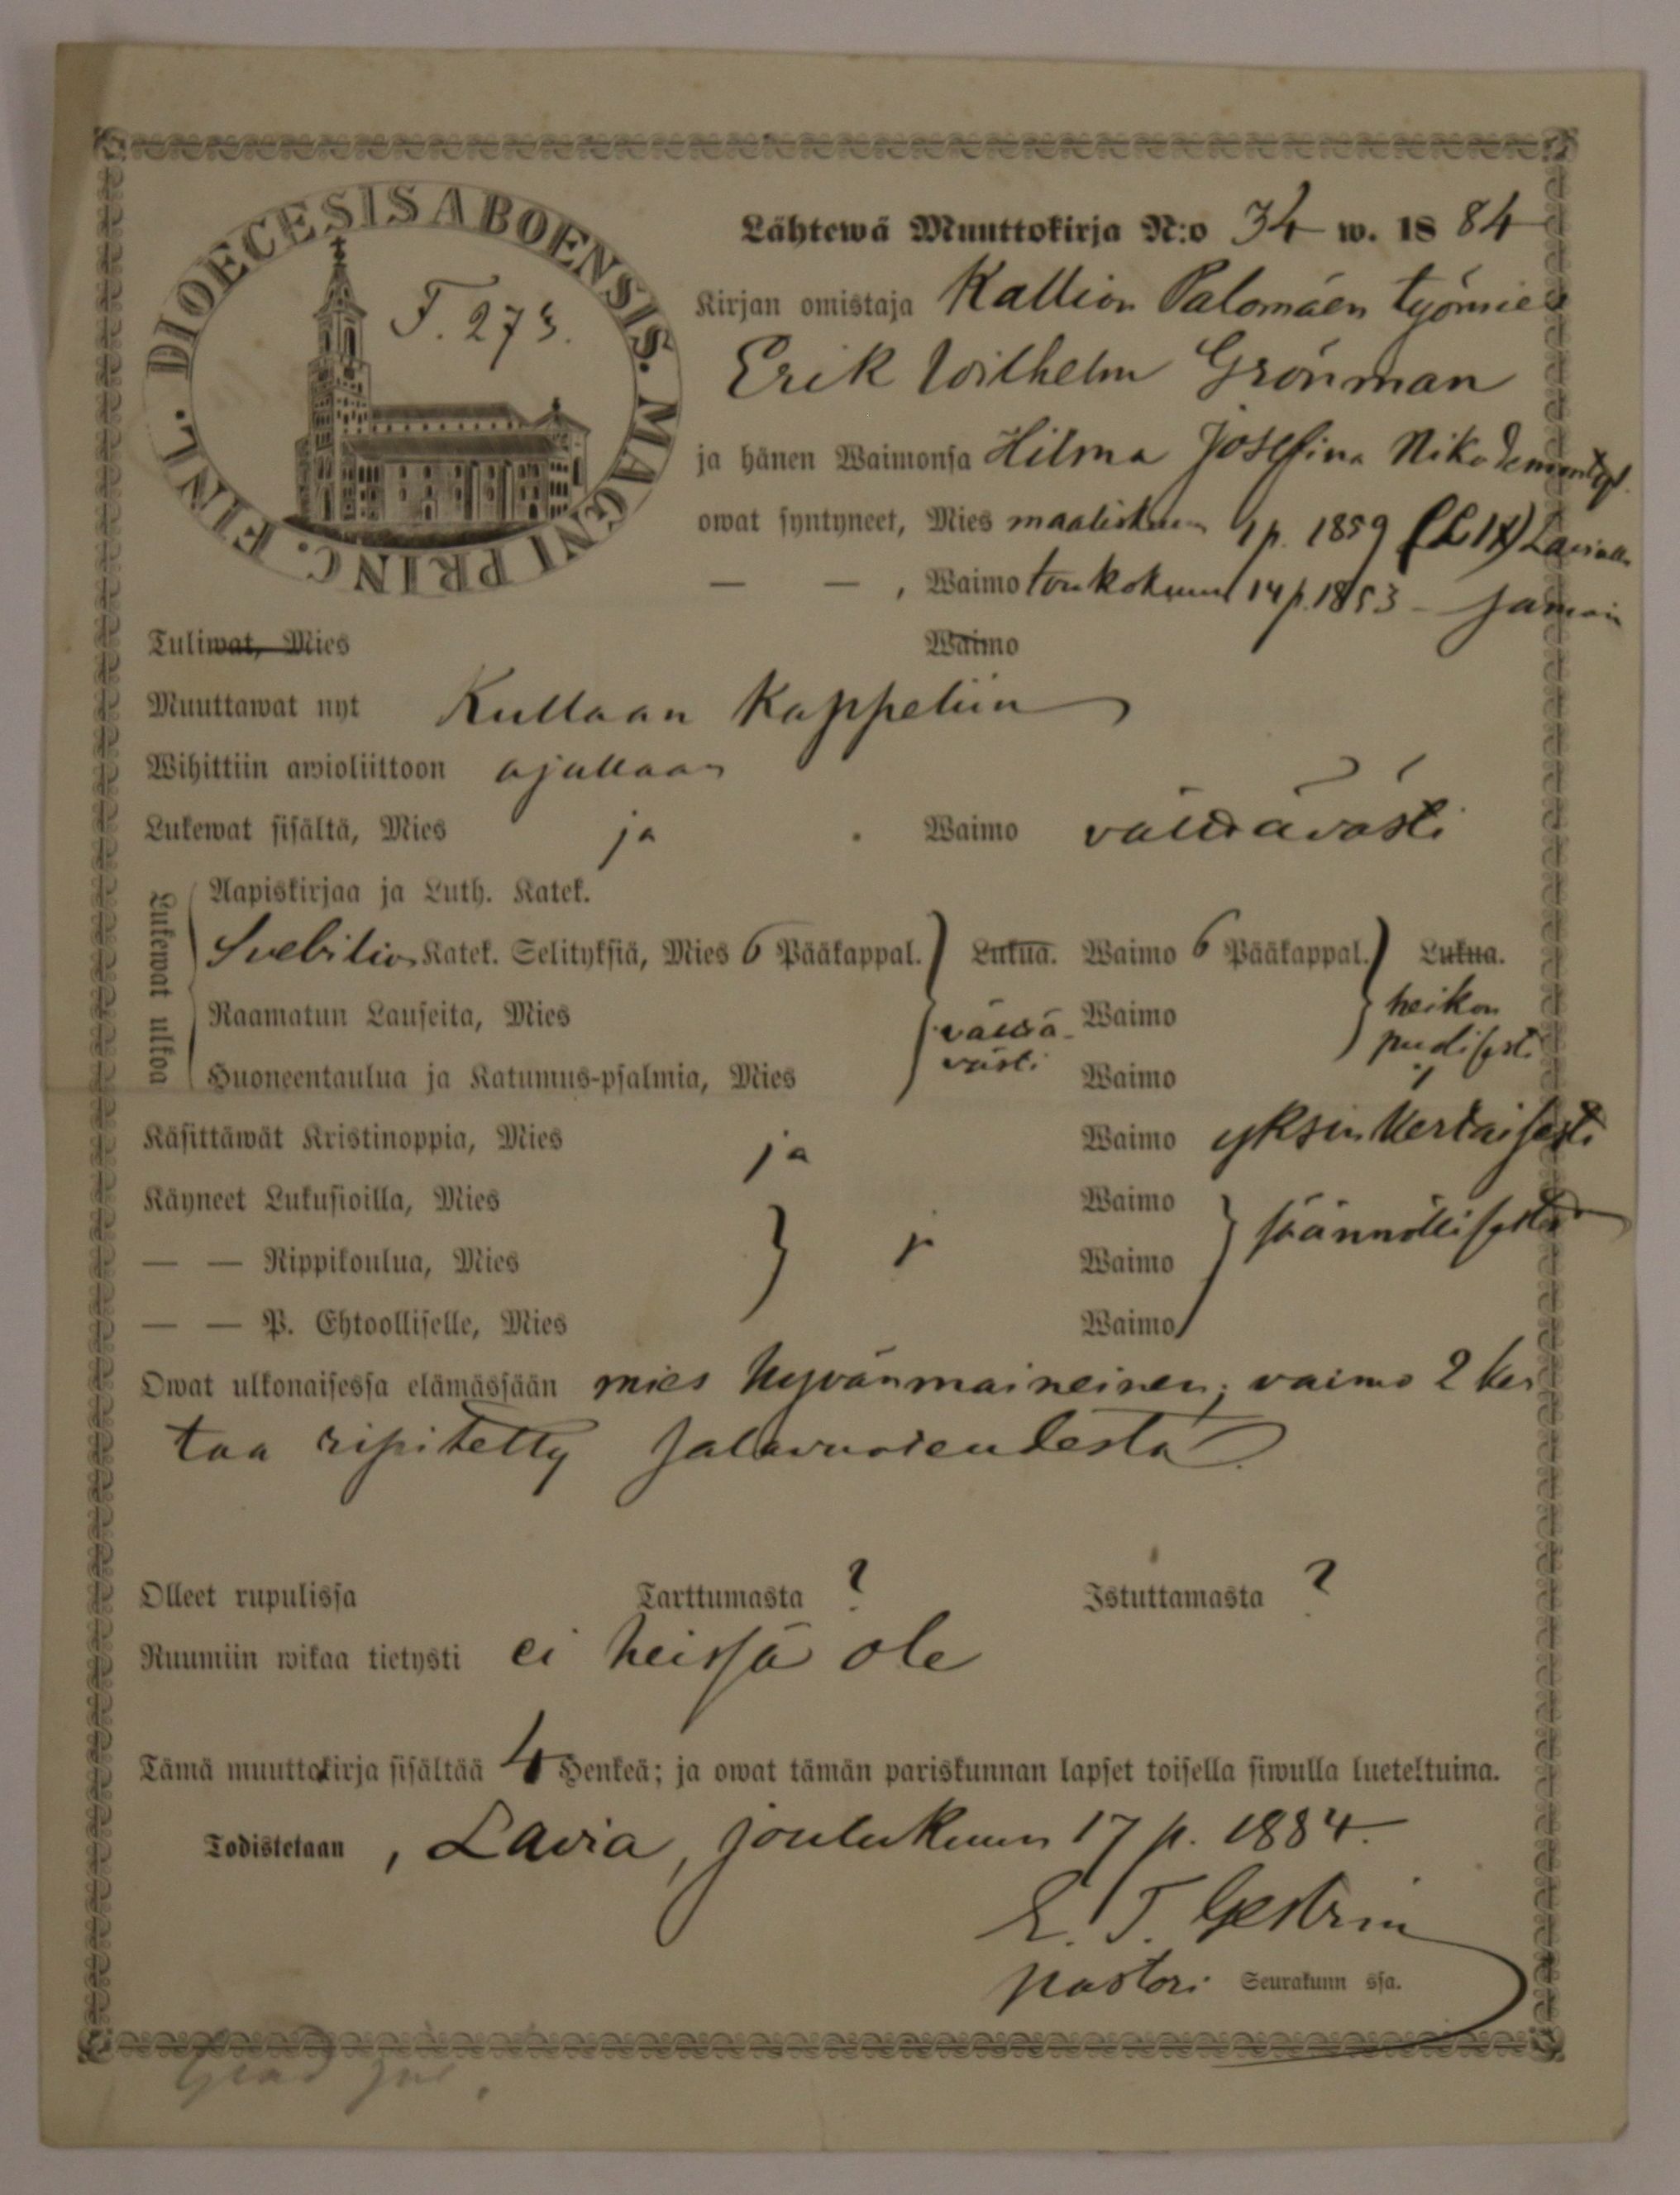 DIOECESIS ABOENSIS. MAGNI PRINC. FINL.
T. 273.
Lähtewä Muuttokirja N:o 34 w. 1884
Kirjan omistaja Kallion Palomäen työmies
Erik Wilhelm Grönman
ja hänen Waimonsa Hilma Josefina Nikodemuntyt.
owat syntyneet, Mies maaliskuun 1 p. 1859 (LIX) Lavialla
— — , Waimo toukokuun 14 p. 1853 – samoin
Tuliwat, Mies Waimo
Muuttawat nyt Kullaan Kappeliin
Wihittiin awioliittoon ajallaan
Lukewat sisältä, Mies ja Waimo välttävästi
Lukewat ulkoa
Aapiskirjaa ja Luth. Katek.
Svebilion Katek. Selityksiä, Mies 6 Pääkappal. Lukua. Waimo 6 Pääkappal. Lukua.
Raamatun Lauseita, Mies välttä- Waimo heikon
Huoneentaulua ja Katumus-psalmia, Mies västi Waimo puolisesti
Käsittäwät Kristinoppia, Mies ja Waimo yksinkertaisesti
Käyneet Lukusioilla, Mies Waimo
— — Rippikoulua, Mies Waimo säännöllisesti
— — P. Ehtoolliselle, Mies Waimo
Owat ulkonaisessa elämässään mies hyvänmaineinen; vaimo 2 ker
taa ripitetty salavuoteudesta
Olleet rupulissa Tarttumasta ? Istuttamasta ?
Ruumiin wikaa tietysti ei heissä ole
Tämä muuttokirja sisältää 4 Henkeä; ja owat tämän pariskunnan lapset toisella siwulla lueteltuina.
Todistetaan, Lavia, joulukuun 17 p. 1884.
E. T. Gestrin
pastori Seurakunn ssa.